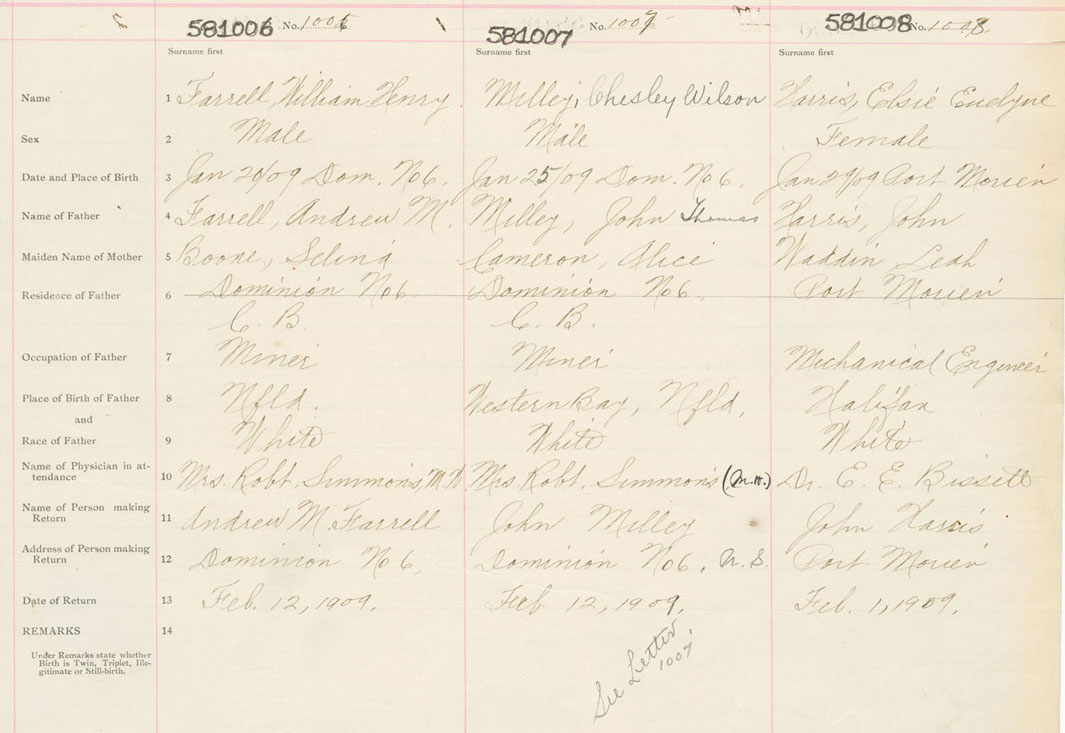 581006 No. 1006 581007 No. 1007 581008 No. 1008
Surname first Surname first Surname first
Name 1 Farrell, William Henry Milley, Chesley Wilson Harris, Elsie Evelyne
Sex 2 Male Male Female
Date and Place of Birth 3 Jan /09 Dom. No 6. Jan 25/09 Dom. No 6. Jan 29/09 Port Morien
Name of Father 4 Farrell, Andrew M. Milley, John Thomas Harris, John
Maiden Name of Mother 5 Boone, Selina Cameron, Alice Waddin Leah
Residence of Father 6 Dominion No 6 Dominion No 6, Port Morien
C. B. C. B.
Occupation of Father 7 Miner Miner Mechanical Engineer
Place of Birth of Father 8 Nfld. Western Bay, Nfld, Halifax
and
Race of Father 9 White White White
Name of Physician in at-
tendance 10 Mrs. Robt. Simmons, M W Mrs Robt. Simmons (M.W.) Dr. E. E. Bissett
Name of Person making
Return 11 Andrew M. Farrell John Milley John Harris
Address of Person making
Return 12 Dominion No 6, Dominion No 6, N.S. Port Morien
Date of Return 13 Feb. 12, 1909. Feb 12, 1909. Feb. 1, 1909.
REMARKS 14
Under Remarks state whether
Birth is Twin, Triplet, Ille-
gitimate or Still-birth.
See Letter
1007